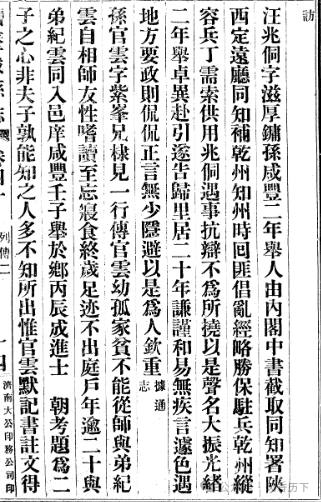 訪
汪兆侗字滋厚鏞孫咸豐二年舉人由內閣中書截取同知署陝
西定遠廳同知補乾州知州時囘匪倡亂經略勝保駐兵乾州縱
容兵丁需索供用兆侗遇事抗辯不爲所撓以是聲名大振光緒
二年舉卓異赴引遂告歸里居二十年謙謹和易無疾言遽色遇
地方要政則侃侃正言無少隱避以是爲人欽重據通志
孫官雲字紫峯兄棣見一行傳官雲幼孤家貧不能從師與弟紀
雲自相師友性嗜讀至忘寢食終歲足迹不出庭戶年逾二十與
弟紀雲同入邑庠咸豐壬子舉於鄉丙辰成進士 朝考題爲二
子之心非夫子孰能知之人多不知所出惟官雲默記書註文得
列傳二
濟南大公印務公司印
历下